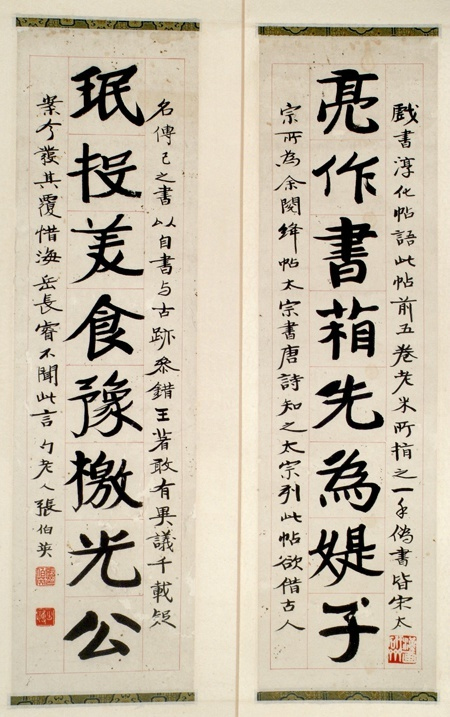 戲書淳化帖語此帖前五卷老米所指之一手偽書皆宋太
亮作書箱先為媞子
宗所為余閱絳帖太宗書唐詩知之太宗此帖欲借古人
名傳己之書以自書与古跡參錯王著敢有異議千載疑
珉投美食豫檄光公
案今發其覆惜海岳長睿不聞此言 勺老人張伯英